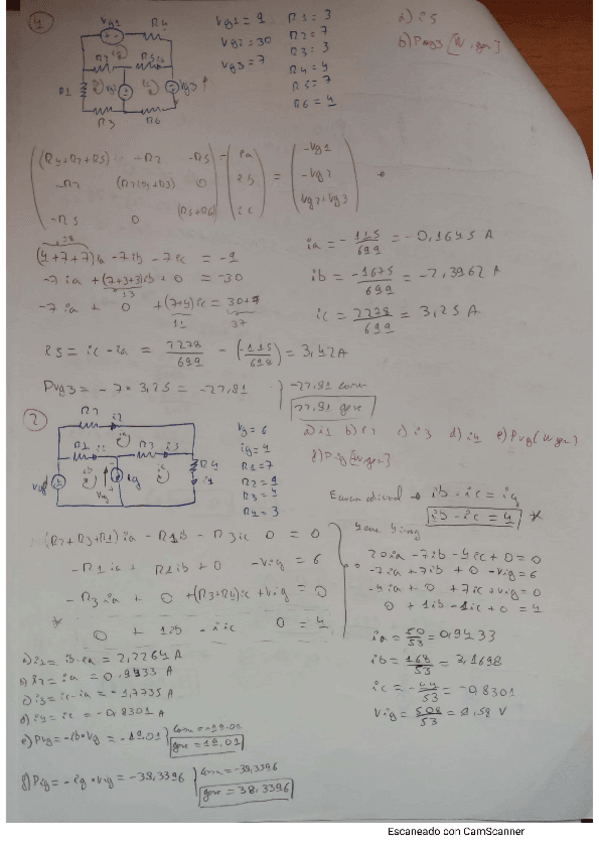 Vg1 R4
Vg1 = 9 R1 = 3 a) i5
Vg2 = 30 R2 = 7 b) Pvg3 [W gen]
Vg3 = 7 R3 = 3
R4 = 4
R5 = 7
R6 = 4
R2 R5
R1 Vg2 Vg3
R3 R6
(R4+R2+R5) -R2 -R5 ia -Vg1
-R2 (R2+R1+R3) 0 ib = -Vg2
-R5 0 (R5+R6) ic Vg2+Vg3
18
(4+7+7)ia -7ib -7ic = -9
-7ia +(7+3+3)ib + 0 = -30
13
-7ia + 0 +(7+4)ic = 30+7
11 37
ia = -115/699 = -0,1645 A
ib = -1675/699 = -2,3962 A
ic = 2278/699 = 3,25 A
= ic-ia = 2278/699 - (-115/699) = 3,42A
Pvg3 = -7 · 3,25 = -22,81
-22,81 cons
22,81 gen
2
R2 i2
R1 i1 R3 i3
R4
i4
vg ig
Vg = 6
ig = 4
R1 = 7
R2 = 9
R3 = 4
R4 = 3
a) i1 b) i2 c) i3 d) i4 e) Pvg [W gen]
f) Pig [W gen]
ib - ic = ig
ib - ic = 4 *
(R2+R3+R1)ia - R1ib - R3ic 0 = 0
-R1ia + R1ib + 0 -Vig = 6
-R3ia + 0 +(R3+R4)ic +Vig = 0
* 0 + 1ib - 1ic 0 = 4
20ia -7ib -4ic +0 = 0
-7ia +7ib + 0 -vig = 6
-4ia + 0 + 7ic +vig = 0
0 + 1ib -1ic +0 = 4
ia = 50/53 = 0,9433
ib = 168/53 = 3,1698
ic = -44/53 = -0,8301
Vig = 508/53 = 9,58 V
a) i1 = ib-ia = 2,2264 A
b) i2 = ia = 0,9433 A
c) i3 = ic-ia = -1,7735 A
d) i4 = ic = -0,8301 A
e) Pvg = -ib·Vg = -19,01
cons = -19,01
gen = 19,01
f) Pig = -ig·vig = -38,3396
cons = -38,3396
gen = 38,3396
Escaneado con CamScanner